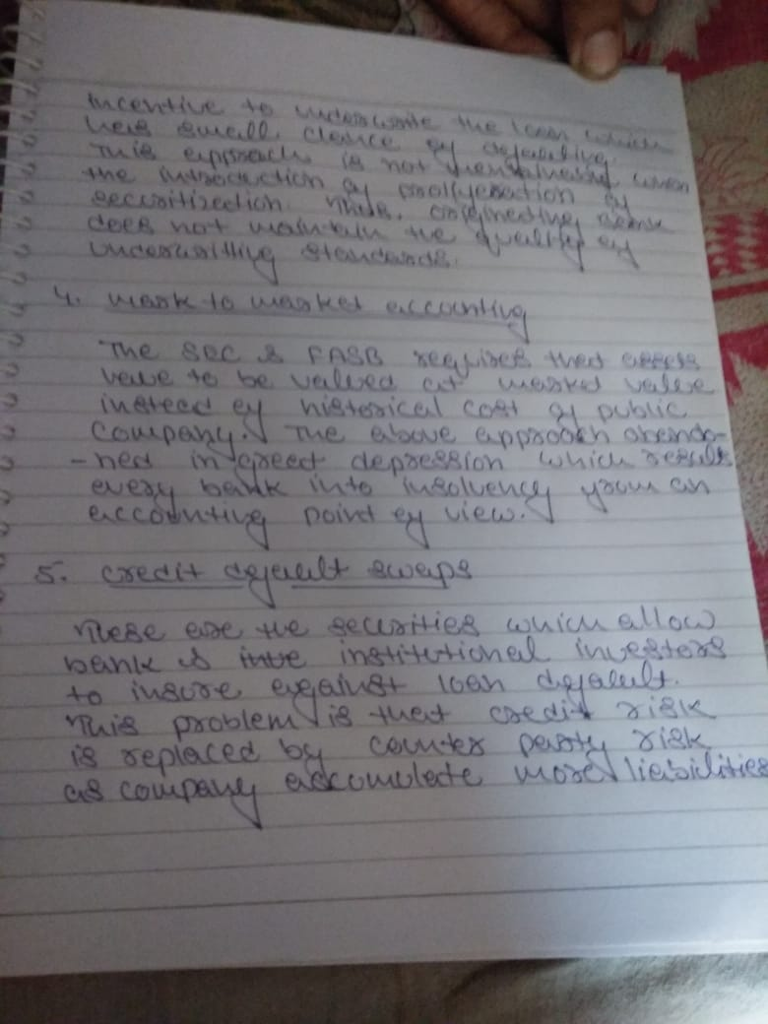 incentive to underwrite the loan which
has small chance of defaulting.
This approach is not when
the introduction of of
securitization. Thus, originating bank
does not maintain the quality of
underwritting standards.
4. mark to market accounting
The SEC & FASB requires that assets
have to be valued at market value
instead of historical cost of public
company. The above approach abando-
-ned in great depression which result
every bank into insolvency from an
accounting point of view.
5. credit default swaps
These are the securities which allow
bank & institutional investors
to insure against loan default.
This problem is that credit risk
is replaced by counter party risk
as company accumulate more liabilities